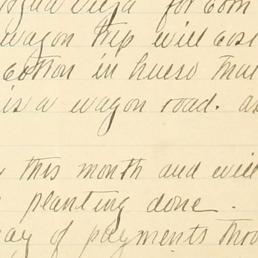 Agua Vieja for corn
wagon trip will cos
Cotton in hueso that
is a wagon road. as
this month and will
planting done.
way of payments thro